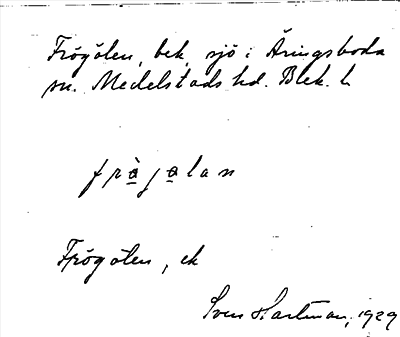 Frögölen, bek, sjö i Äringsboda
sn. Medelstads hd. Blek. l.
frö̀gölan
Frögölen, ek
Sven Hartman, 1929